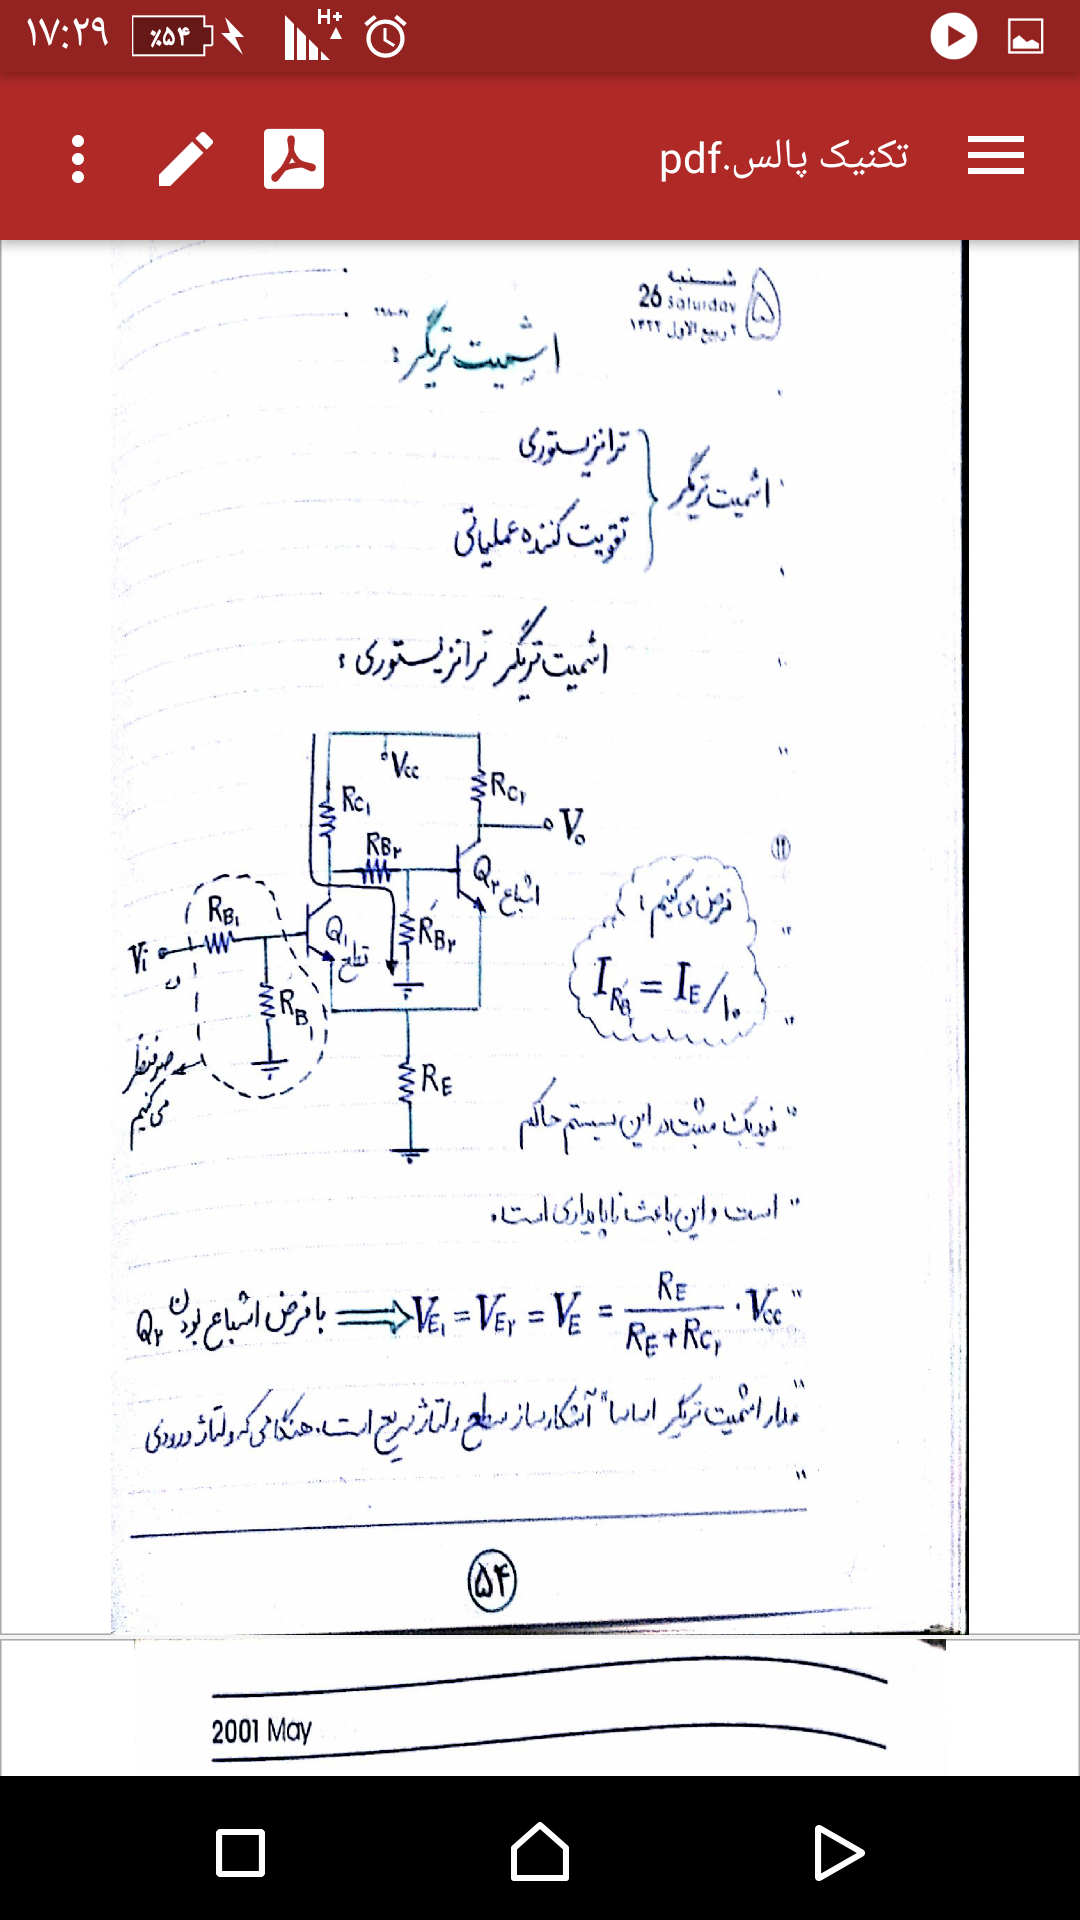 ۱۷:۲۹ ٪۵۴ H+
تکنیک پالس.pdf
شنبه
26 Saturday
۲ ربیع الاول ۱۴۲۲
۵
اشمیت تریگر :
اشمیت تریگر
ترانزیستوری
تقویت کننده عملیاتی
اشمیت تریگر ترانزیستوری :
Vcc
RC۱
RC۲
Vo
RB۲
Q۲
اشباع
RB۱
Vi
Q۱
قطع
R'B۲
R'B
صرفنظر
می کنیم
RE
فرض می کنیم :
IR'B۲ = IE/۱۰
فیدبک مثبت در این سیستم حاکم
است و این باعث ناپایداری است.
با فرض اشباع بودن Q۲ ⟹ VE۱ = VE۲ = VE = RE / (RE + RC۲) · Vcc
مدار اشمیت تریگر اساسا" آشکارساز سطح ولتاژ سریع است. هنگامی که ولتاژ ورودی
۵۴
2001 May